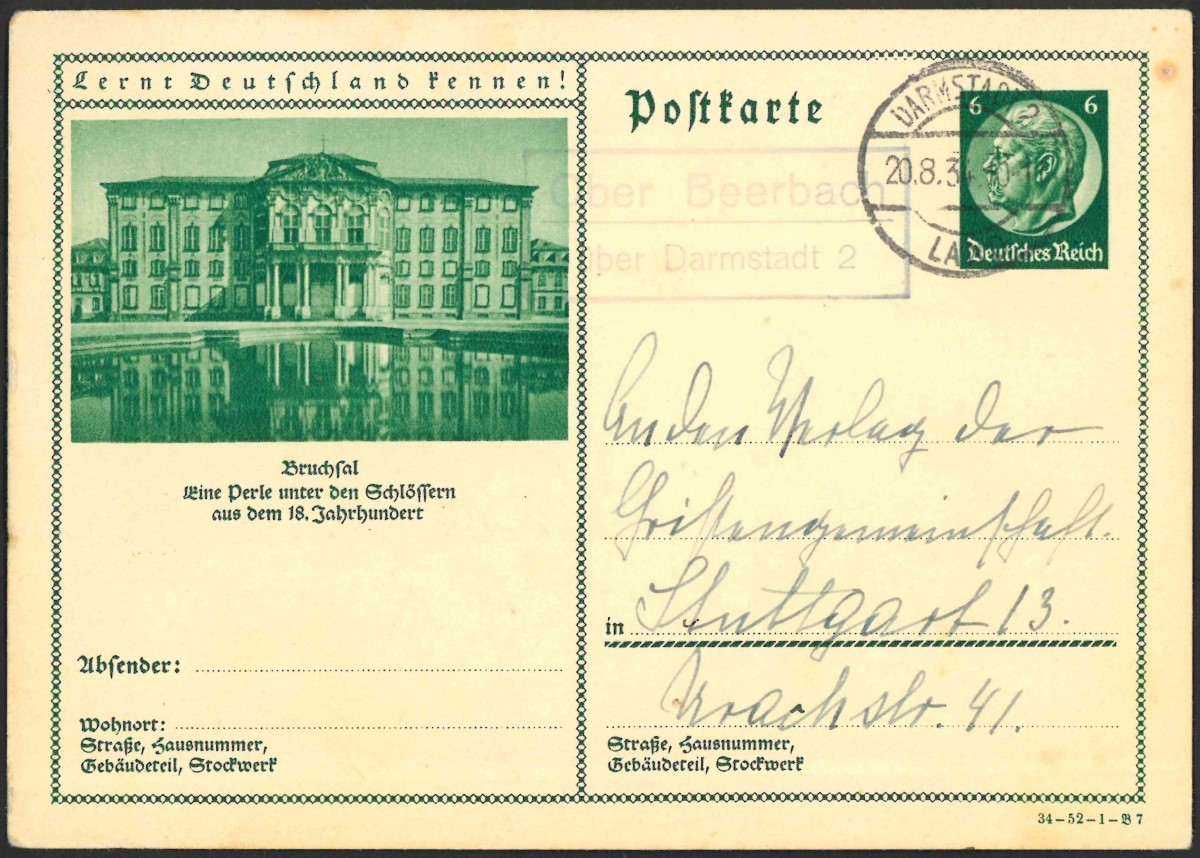 Lernt Deutschland kennen!
Bruchsal
Eine Perle unter den Schlössern
aus dem 18. Jahrhundert
Absender:
Wohnort:
Straße, Hausnummer,
Gebäudeteil, Stockwerk
Postkarte
Ober Beerbach
über Darmstadt 2
DARMSTADT 2
20.8.34
LAND
6 6
Deutsches Reich
An den Verlag der
Christengemeinschaft.
in Stuttgart 13.
Urachstr. 41.
Straße, Hausnummer,
Gebäudeteil, Stockwerk
34-52-1-B7